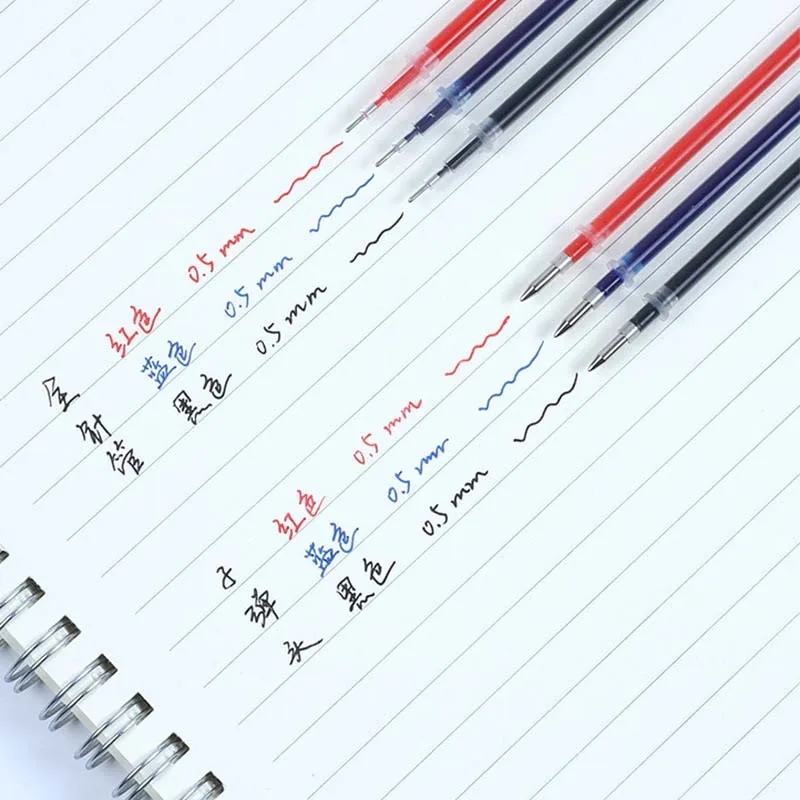 全针管
红色 0.5mm
蓝色 0.5mm
黑色 0.5mm
子弹头
红色 0.5mm
蓝色 0.5mm
黑色 0.5mm